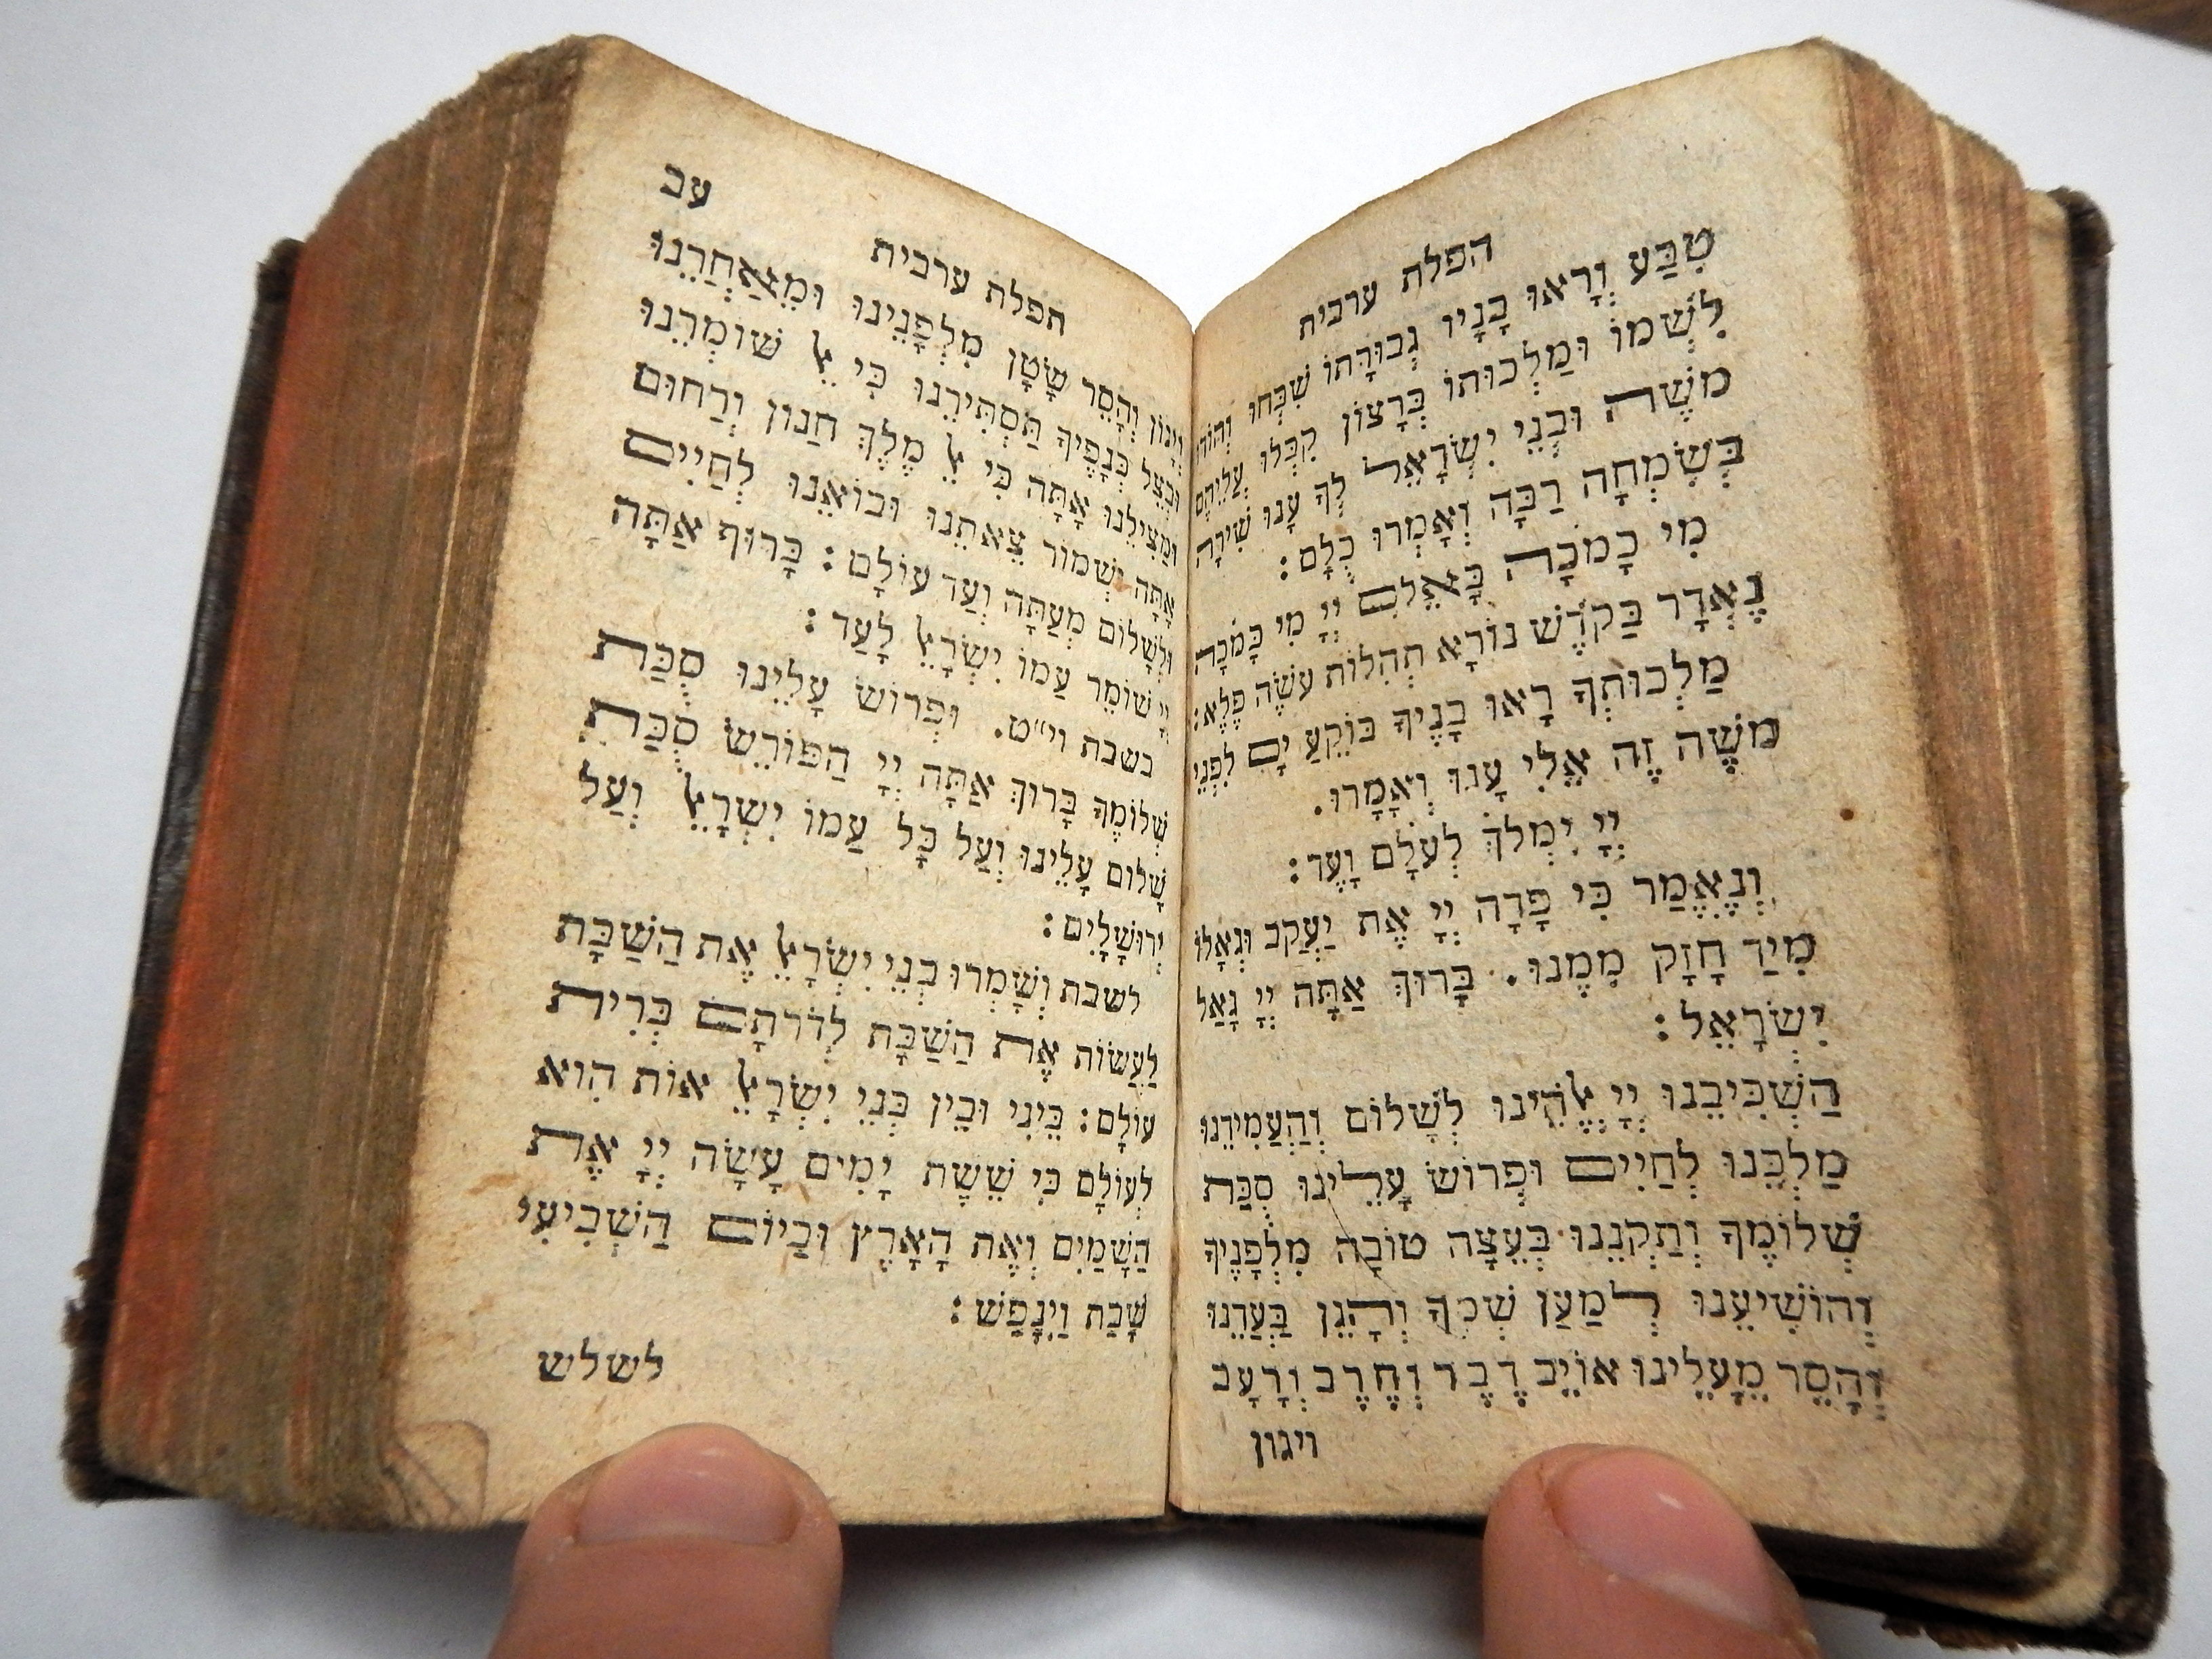 תפלת ערבית
טִבַּע וְרָאוּ בָנָיו גְבוּרָתוֹ שִׁבְּחוּ וְהוֹדוּ
לִשְׁמוֹ וּמַלְכוּתוֹ בְּרָצוֹן קִבְּלוּ עֲלֵיהֶם
משֶׁה וּבְנֵי יִשְׂרָאֵל לְךָ עָנוּ שִׁירָה
בְּשִׂמְחָה רַבָּה וְאָמְרוּ כֻלָּם:
מִי כָמֹכָה בָּאֵלִם יְיָ מִי כָּמֹכָה
נֶאְדָּר בַּקֹּדֶשׁ נוֹרָא תְהִלּוֹת עֹשֵׂה פֶלֶא:
מַלְכוּתְךָ רָאוּ בָנֶיךָ בּוֹקֵעַ יָם לִפְנֵי
משֶׁה זֶה אֵלִי עָנוּ וְאָמָרוּ.
יְיָ יִמְלֹךְ לְעֹלָם וָעֶד:
וְנֶאֱמַר כִּי פָדָה יְיָ אֶת יַעֲקֹב וּגְאָלוֹ
מִיַּד חָזָק מִמֶּנוּ. בָּרוּךְ אַתָּה יְיָ גָּאַל
יִשְׂרָאֵל:
הַשְׁכִּיבֵנוּ יְיָ אֱלֹהֵינוּ לְשָׁלוֹם וְהַעֲמִידֵנוּ
מַלְכֵּנוּ לְחַיִּים וּפְרוֹשׂ עָלֵינוּ סֻכַּת
שְׁלוֹמֶךָ וְתַקְּנֵנוּ בְּעֵצָה טוֹבָה מִלְּפָנֶיךָ
וְהוֹשִׁיעֵנוּ לְמַעַן שְׁמֶךָ וְהָגֵן בַּעֲדֵנוּ
וְהָסֵר מֵעָלֵינוּ אוֹיֵב דֶּבֶר וְחֶרֶב וְרָעָב
ויגון
עב
תפלת ערבית
וְיָגוֹן וְהָסֵר שָׂטָן מִלְּפָנֵינוּ וּמֵאַחֲרֵנוּ
וּבְצֵל כְּנָפֶיךָ תַּסְתִּירֵנוּ כִּי אֵל שׁוֹמְרֵנוּ
וּמַצִּילֵנוּ אָתָּה כִּי אֵל מֶלֶךְ חַנּוּן וְרַחוּם
אָתָּה וּשְׁמוֹר צֵאתֵנוּ וּבוֹאֵנוּ לְחַיִּים
וּלְשָׁלוֹם מֵעַתָּה וְעַד עוֹלָם: בָּרוּךְ אַתָּה
יְיָ שׁוֹמֵר עַמּוֹ יִשְׂרָאֵל לָעַד:
בשבת וי״ט. וּפְרוֹשׂ עָלֵינוּ סֻכַּת
שְׁלוֹמֶךָ בָּרוּךְ אַתָּה יְיָ הַפּוֹרֵשׂ סֻכַּת
שָׁלוֹם עָלֵינוּ וְעַל כָּל עַמּוֹ יִשְׂרָאֵל וְעַל
יְרוּשָׁלָיִם:
לשבת וְשָׁמְרוּ בְנֵי יִשְׂרָאֵל אֶת הַשַּׁבָּת
לַעֲשׂוֹת אֶת הַשַּׁבָּת לְדֹרֹתָם בְּרִית
עוֹלָם: בֵּינִי וּבֵין בְּנֵי יִשְׂרָאֵל אוֹת הִוא
לְעוֹלָם כִּי שֵׁשֶׁת יָמִים עָשָׂה יְיָ אֶת
הַשָּׁמַיִם וְאֶת הָאָרֶץ וּבַיּוֹם הַשְּׁבִיעִי
שָׁבַת וַיִּנָּפַשׁ:
לשלש